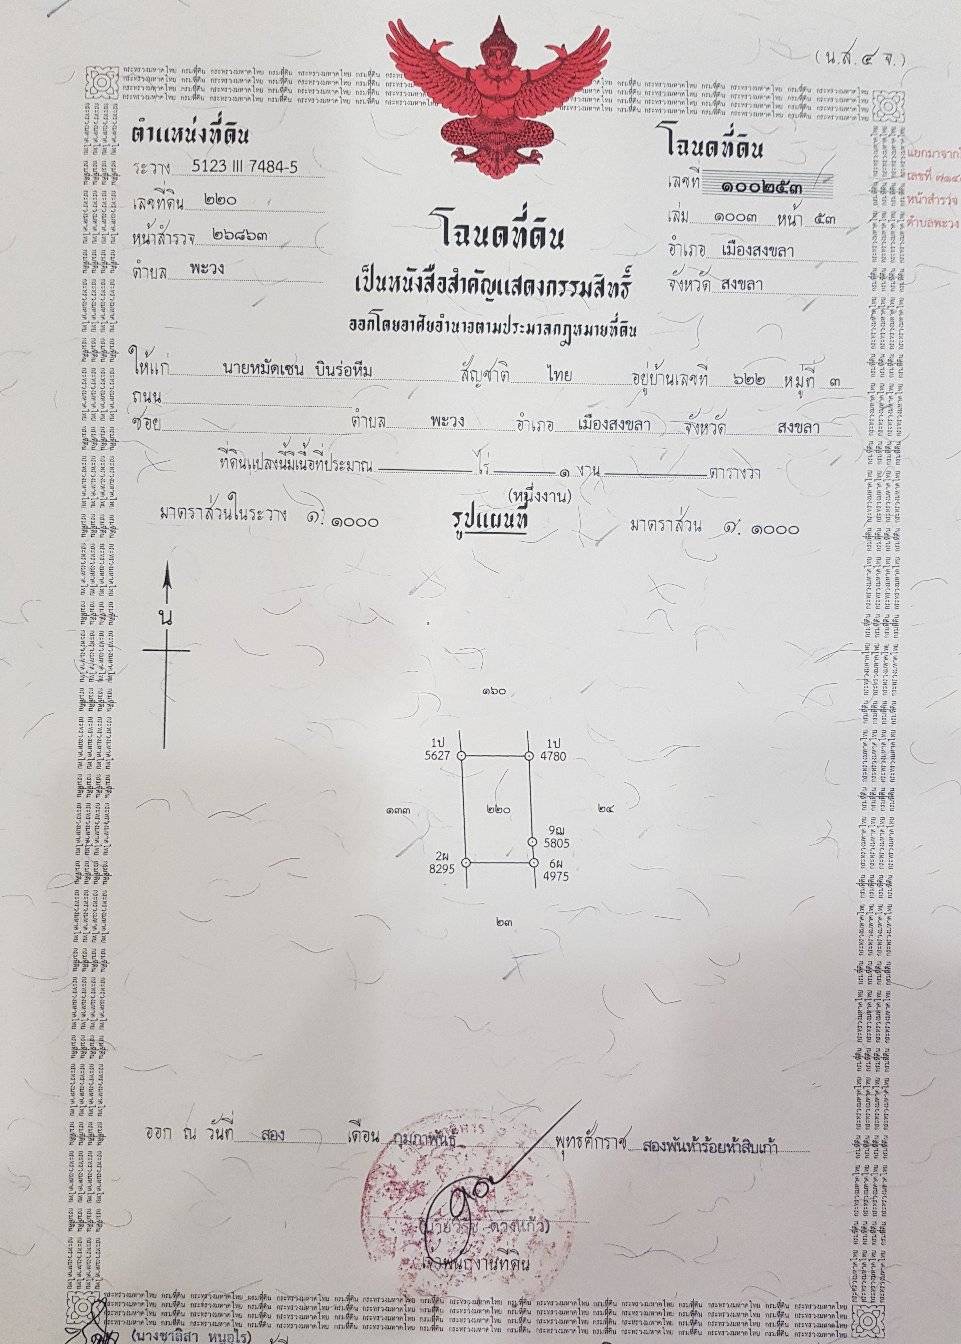 (น.ส. ๔ จ.)
ตำแหน่งที่ดิน
ระวาง 5123 III 7484-5
เลขที่ดิน ๒๒๐
หน้าสำรวจ ๒๖๘๖๓
ตำบล พะวง
โฉนดที่ดิน
เลขที่ ๑๐๐๒๕๓
เล่ม ๑๐๐๓ หน้า ๕๓
อำเภอ เมืองสงขลา
จังหวัด สงขลา
แยกมาจาก
เลขที่
หน้าสำรวจ
ตำบลพะวง
โฉนดที่ดิน
เป็นหนังสือสำคัญแสดงกรรมสิทธิ์
ออกโดยอาศัยอำนาจตามประมวลกฎหมายที่ดิน
ให้แก่ นายหมัดเซ่น บินร่อหีม สัญชาติ ไทย อยู่บ้านเลขที่ ๖๒๒ หมู่ที่ ๓
ถนน
ซอย ตำบล พะวง อำเภอ เมืองสงขลา จังหวัด สงขลา
ที่ดินแปลงนี้มีเนื้อที่ประมาณ ไร่ ๑ งาน ตารางวา
(หนึ่งงาน)
มาตราส่วนในระวาง ๑: ๑๐๐๐ รูปแผนที่ มาตราส่วน ๑: ๑๐๐๐
น
๑๖๐
1ป 1ป
5627 4780
๑๓๓ ๒๒๐ ๒๔
9ฌ
5805
2ผ 6ผ
8295 4975
๒๓
ออก ณ วันที่ สอง เดือน กุมภาพันธ์ พุทธศักราช สองพันห้าร้อยห้าสิบเก้า
ดวงแก้ว)
เจ้าพนักงานที่ดิน
(นางชาลิสา หนูอุไร)